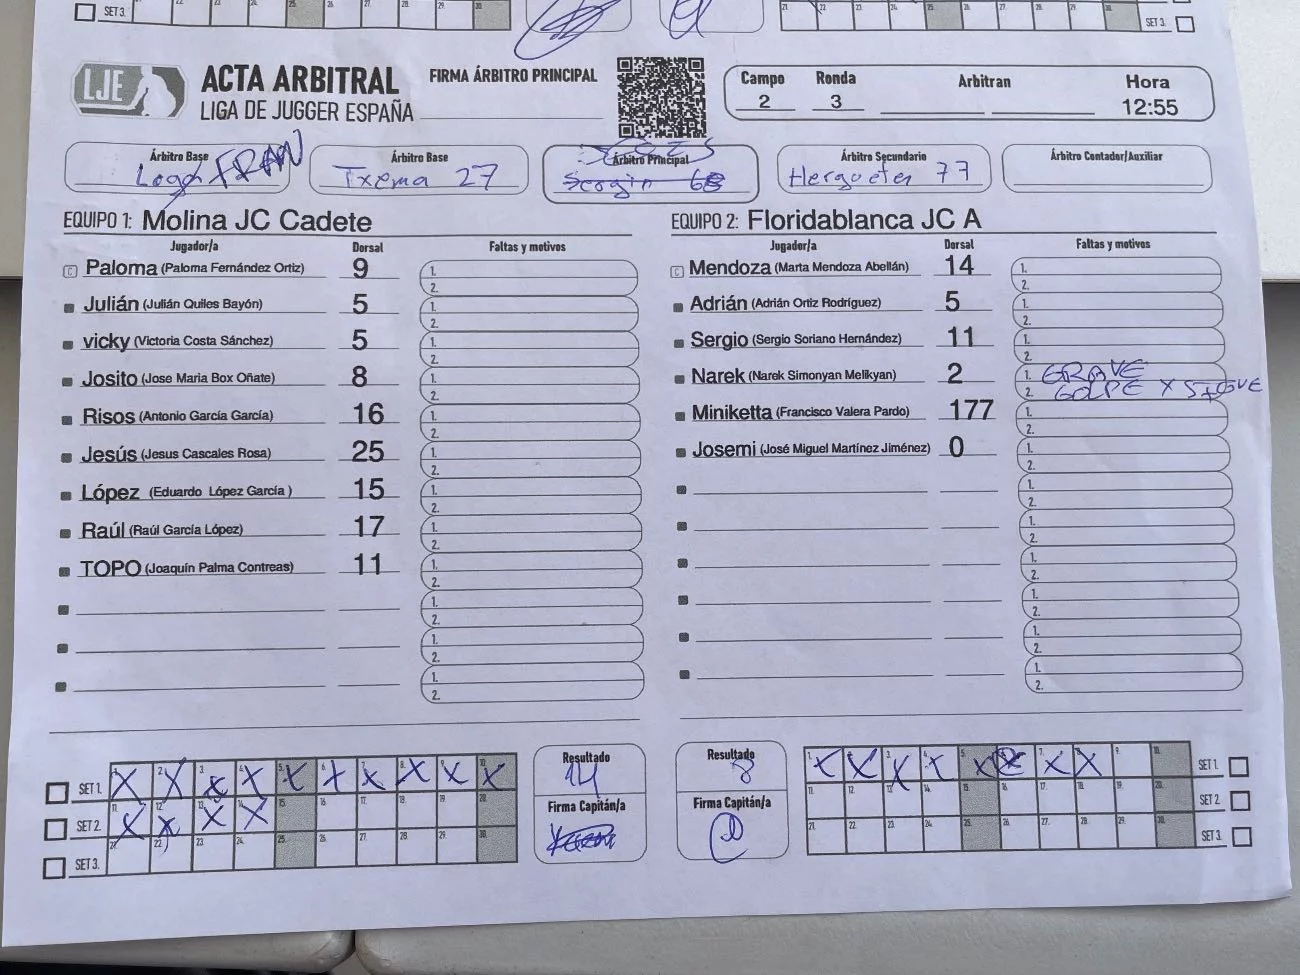 SET 3.
SET 3.
LJE
ACTA ARBITRAL
LIGA DE JUGGER ESPAÑA
FIRMA ÁRBITRO PRINCIPAL
Campo Ronda Arbitran Hora
2 3 12:55
Árbitro Base Árbitro Base Árbitro Principal Árbitro Secundario Árbitro Contador/Auxiliar
FRAN Txema 27 Sergio 68 Hergueter 77
EQUIPO 1: Molina JC Cadete
Jugador/a Dorsal Faltas y motivos
C Paloma (Paloma Fernández Ortiz) 9 1. 2.
Julián (Julián Quiles Bayón) 5 1. 2.
vicky (Victoria Costa Sánchez) 5 1. 2.
Josito (Jose Maria Box Oñate) 8 1. 2.
Risos (Antonio García García) 16 1. 2.
Jesús (Jesus Cascales Rosa) 25 1. 2.
López (Eduardo López García) 15 1. 2.
Raúl (Raúl García López) 17 1. 2.
TOPO (Joaquín Palma Contreas) 11 1. 2.
1. 2.
1. 2.
1. 2.
EQUIPO 2: Floridablanca JC A
Jugador/a Dorsal Faltas y motivos
C Mendoza (Marta Mendoza Abellán) 14 1. 2.
Adrián (Adrián Ortiz Rodríguez) 5 1. 2.
Sergio (Sergio Soriano Hernández) 11 1. 2.
Narek (Narek Simonyan Melikyan) 2 1. GRAVE
2. GOLPE X SIGUE
Miniketta (Francisco Valera Pardo) 177 1. 2.
Josemi (José Miguel Martínez Jiménez) 0 1. 2.
1. 2.
1. 2.
1. 2.
1. 2.
1. 2.
1. 2.
SET 1. X X X X X X X X X X
SET 2. X X X X
SET 3.
Resultado
14
Firma Capitán/a
Resultado
8
Firma Capitán/a
X X X X X X X SET 1.
SET 2.
SET 3.